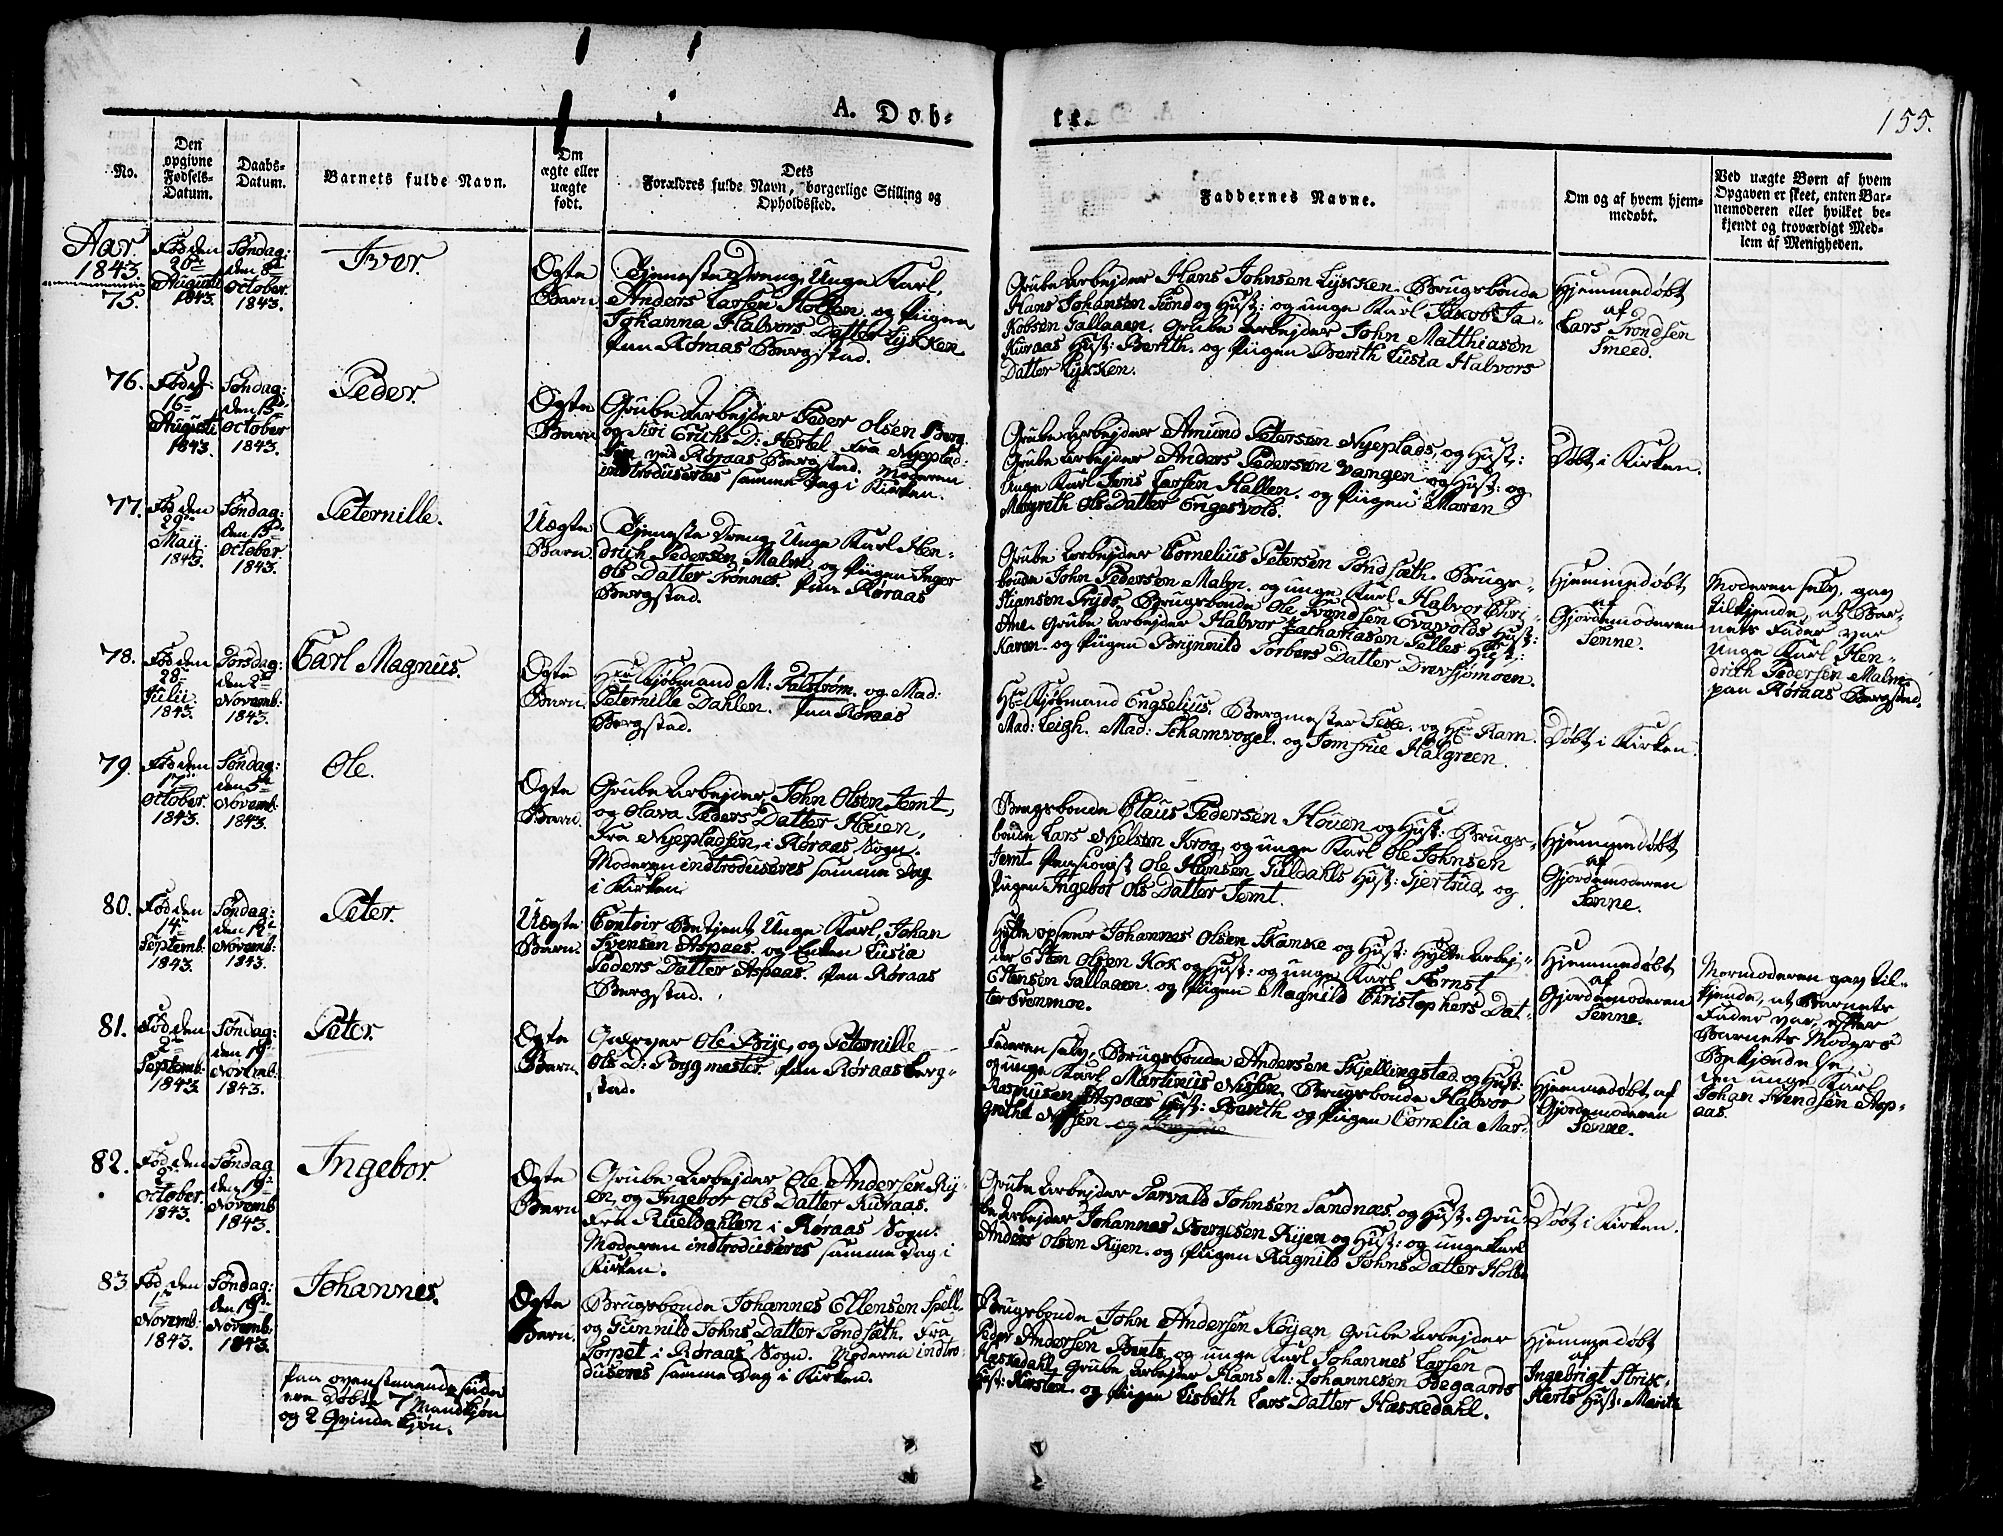 A. Døb-
te.
155.
No.
Den opgivne Fødsels-Datum.
Daabs-Datum.
Barnets fulde Navn.
Om ægte eller uægte født.
Dets
Forældres fulde Navn, borgerlige Stilling og
Opholdssted.
Faddernes Navne.
Om og af hvem hjem-
medøbt.
Ved uægte Børn af hvem
Opgaven er skeet, enten Bar-
nemoderen eller hvilket be-
kjendt og troværdigt Med-
lem af Menigheden.
Aar
1843.
75.
Fød den
20de
Augusti
1843.
Søndag:
den 8de
October
1843.
Iver.
Ægte
Barn.
Tjeneste Dreng, Unge Karl,
Anders Larsen Holken, og Pigen
Johanna Halvors Datter Lykken
paa Røraas Bergstad.
Grube Arbejder Hans Johnsen Lykken. Brugsbonde
Hans Johansen Sund og Hust: og unge Karl Jakob Ja-
kobsen Gallaaen. Grube Arbejder John Matthiasen
Kuraas Hust: Berith. og Pigen Berith Lusia Halvors
Datter Lykken.
Hjemmedøbt
af
Lars Trondsen
Smeed.
76.
Fød d.
16
Augusti
1843.
Søndag:
den 15de
October
1843.
Peder.
Ægte
Barn.
Grube Arbejder Peder Olsen Berg
og Siri Erichs D: Hertel fra Nyeplad-
sen ved Røraas Bergstad. Moderen
indtroduseres samme Dag i Kirken.
Grube Arbejder Amund Petersen Nyeplads, og Hust:
Grube Arbejder Anders Pedersen Vangen og Hust: og
Unge Karl Jens Larsen Hallen. og Pigen Maren
Margreth Ols Datter Engesvold.
Døbt i Kirken.
77.
Fød den
29de
Maij
1843.
Søndag:
den 15de
October
1843.
Peternille.
Uægte
Barn.
Tjeneste Dreng, Unge Karl Hen-
drich Pedersen Malm. og Pigen Inger
Ols Datter Trønnes. paa Røraas
Bergstad.
Grube Arbejder Cornelius Petersen Sundsæth. Brugs-
bonde John Pedersen Malm. og unge Karl Halvor Chri-
stiansen Pryds, Brugsbonde Ole Svendsen Evavolds Hust:
Ane. Grube Arbejder Halvor Zachariasen Selles Hust:
Karen. og Pigen Brynnild Torbers Datter Drevsjømoen.
Hjemmedøbt
af
Gjordemoderen
Senne.
Moderen selv, gav
tilkjende, at Bar-
nets Fader var
unge Karl Hen-
drich Pedersen Malm.
paa Røraas Bergstad.
78.
Fød den
28
Julii
1843.
Torsdag:
den 2den
Novemb:
1843.
Carl Magnus.
Ægte
Barn.
Hrr Kjøbmand M: Palstrøm. og Mad:
Peternille Dahlen. paa Røraas
Bergstad.
Hrr Kjøbmand Engselius. Bergmester Sexe. og Hrr Ram.
Mad: Leigh. Mad: Schamvogel. og Jomfrue Halgreen.
Døbt i Kirken.
79.
Fød den
17
October.
1843.
Søndag:
den 5te
Novemb:
1843.
Ole.
Ægte
Barn.
Grube Arbejder, John Olsen Jemt,
og Olava Peders Datter Houen,
fra Nyepladsen, i Røraas Sogn.
Moderen indtroduseres samme Dag
i Kirken.
Brugsbonde Claus Pedersen Houen og Hust: Brugs-
bonde Lars Nielsen Krog, og unge Karl Ole Johnsen
Jemt. Pensionist Ole Hansen Guldahls Hust: Gjertrud, og
Pigen Ingebor Ols Datter Jemt.
Hjemmedøbt
af
Gjordemoderen
Senne.
80.
Fød den
14
Septemb.
1843.
Søndag:
den 12te
Novemb:
1843.
Peter.
Uægte
Barn.
Contoir Betjent Unge Karl, Johan
Svensen Aspaas og Enken Lusia
Peders Datter Aspaas. paa Røraas
Bergstad.
Hytte opseer Johannes Olsen Skanke og Hust: Hytte Arbej-
der Esten Olsen Kok og Hust: og unge Karl Ernst
Estensen Gallaaen. og Pigen Magnild Christophers Dat-
ter Brenmoe.
Hjemmedøbt
af
Gjordemoderen
Senne.
Mormoderen gav til-
kjende, at Barnets
Fader var, efter
Barnets Moders
Bekjendelse,
den unge Karl
Johan Svendsen Asp-
aas.
81.
Fød den
2
Septemb.
1843.
Søndag:
den 19de
Novemb:
1843.
Peter.
Ægte
Barn.
Ole Bye, og Peternille
Ols D: Byggmester. paa Røraas Berg-
stad.
Faderen selv, Brugsbonde Andersen Kjellingstad og Hust:
og unge Karl Martinus Nissen. Brugsbonde Halvor
Rasmusen Aspaas Hust: Berith og Pigen Cornelia Mar-
grethe Nissen
Hjemmedøbt af
Gjordemoderen
Senne.
82.
Fød den
2
October.
1843.
Søndag
den 19de
Novemb
1843.
Ingebor.
Ægte
Barn
Grube Arbejder Ole Andersen Ry-
en, og Ingebor Ols Datter Kuraas.
fra Rueldahlen i Røraas Sogn.
Moderen indtroduseres samme Dag i
Kirken.
Grube Arbejder Tarvald Johnsen Sandnæs. og Hust. Gru-
be Arbejder Johannes Børgesen Ryen og Hust: og unge Karl
Anders Olsen Ryen. og Pigen Ragnild Johns Datter Holte
Døbt i Kirken.
83
Fød den
1
Novemb:
1843.
Søndag:
den 19de
Novemb:
1843.
Johannes.
Ægte
Barn.
Brugsbonde Johannes Ellensen Spell.
og Gunnild Johns Datter Sundsæth. fra
Torpet i Røraas Sogn. Moderen indtro-
duseres samme Dag i Kirken.
Brugsbonde John Andersen Køjan, Grube Arbejder
Peder Andersen Bents, og unge Karl Johannes Larsen
Hæskedahl, Grube Arbejder Hans M: Johannesen Ødegaards
Hust: Kirsten. og Pigen Lisbeth Lars Datter Hæskedahl.
Hjemmedøbt
af
Ingebrigt Strik-
kerts Hust: Marith
paa ovenstaaende Side
ere døbte 7 Mandkjøn
og 2 Qvindekjøn.